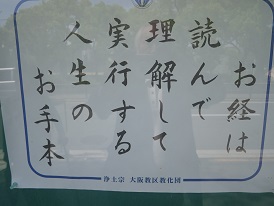 お経は
読んで
理解して
実行する
人生の
お手本
浄土宗 大阪教区教化団